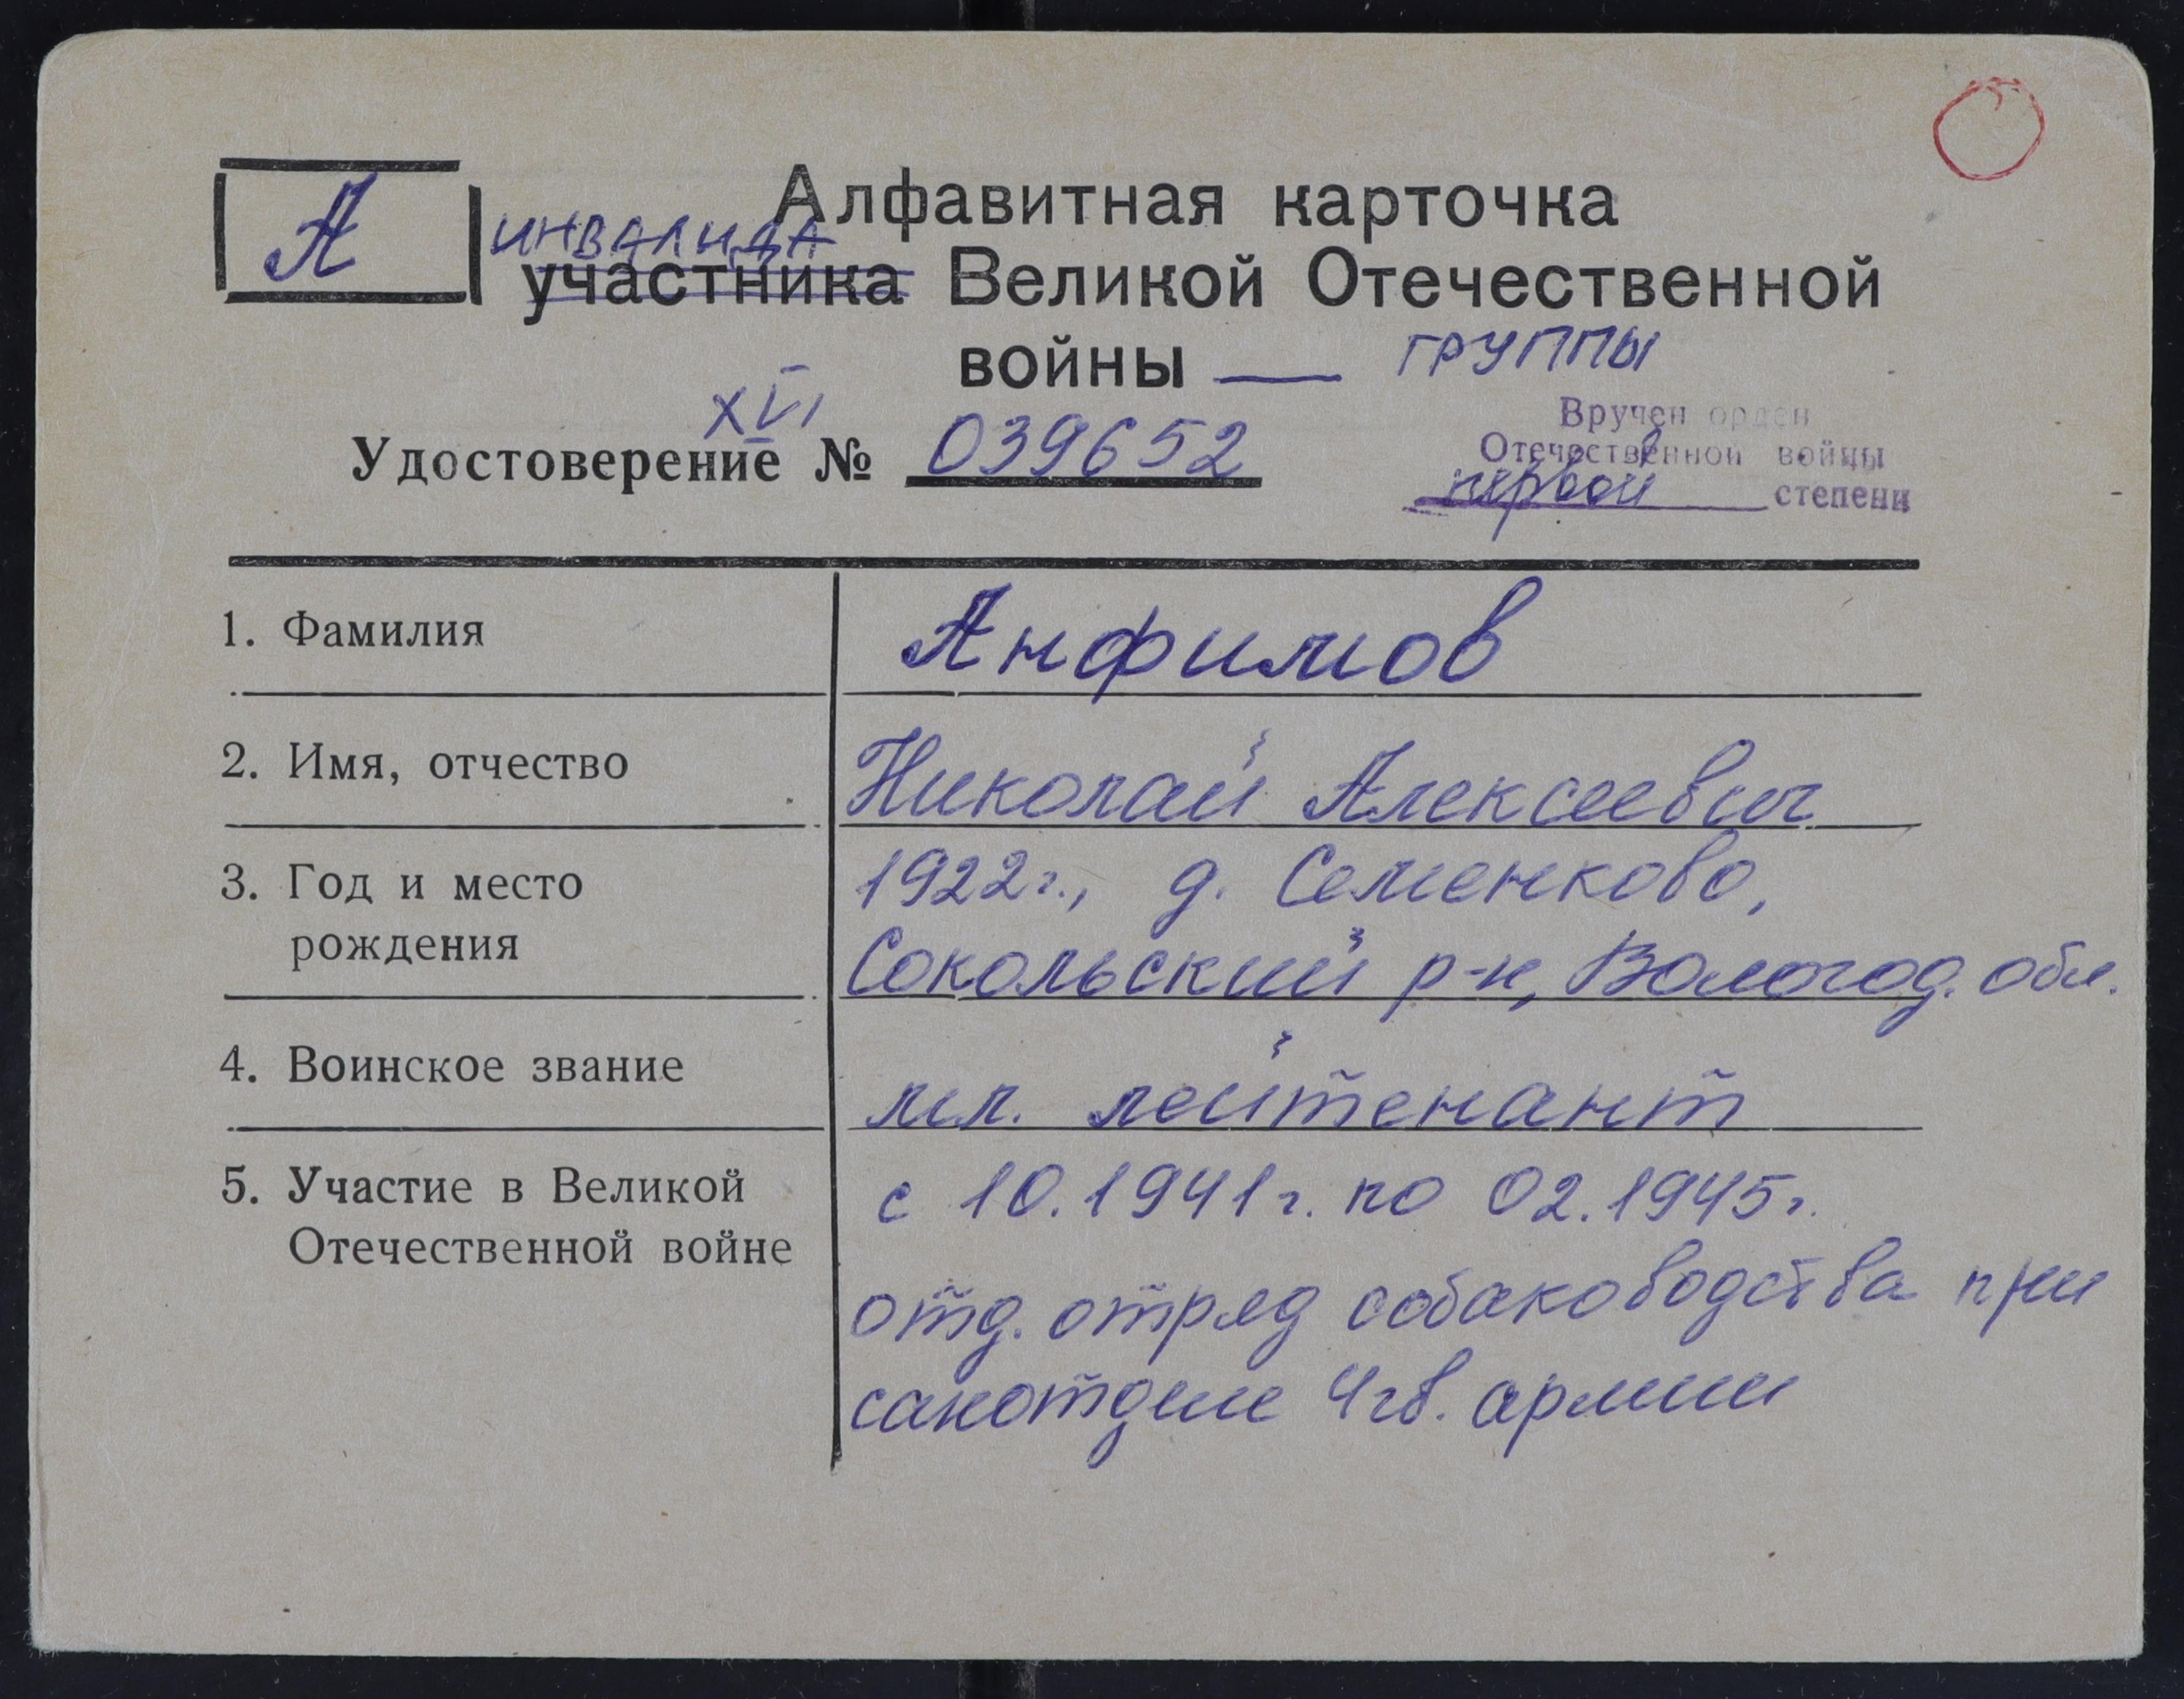 А
Алфавитная карточка
ИНВАЛИДА
участника Великой Отечественной
войны — ГРУППЫ
XVI
Удостоверение № 039652
Вручен орден
Отечественной войны
первой степени
1. Фамилия
Анфимов
2. Имя, отчество
Николай Алексеевич
3. Год и место
рождения
1922г., д. Семенково,
Сокольский р-н, Вологод. обл.
4. Воинское звание
мл. лейтенант
5. Участие в Великой
Отечественной войне
с 10.1941г. по 02.1945г.
отд. отряд собаководства при
санотделе 4 гв. армии